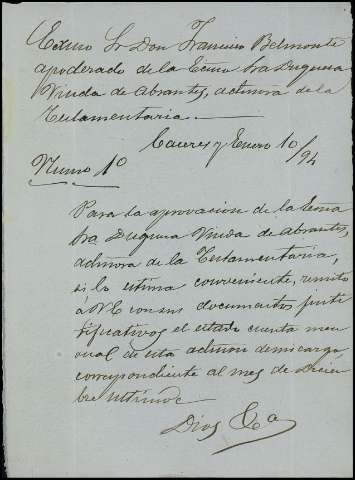 Exmo Sr Don Francisco Belmonte
apoderado de la Exma Sra Duquesa
Viuda de Abrantes, admora de la
Testamentaria.
Caceres y Enero 10/94
Numo 1º
Para la aprovacion de la Exma
Sra Duquesa Viuda de Abrantes,
admora de la Testamentaria,
si lo estima conveniente, remito
á V.E con sus documentos justi
tificativos el estado cuenta men
sual de esta admon de mi cargo,
correspondiente al mes de Diciem
bre ultimo
Dios &a